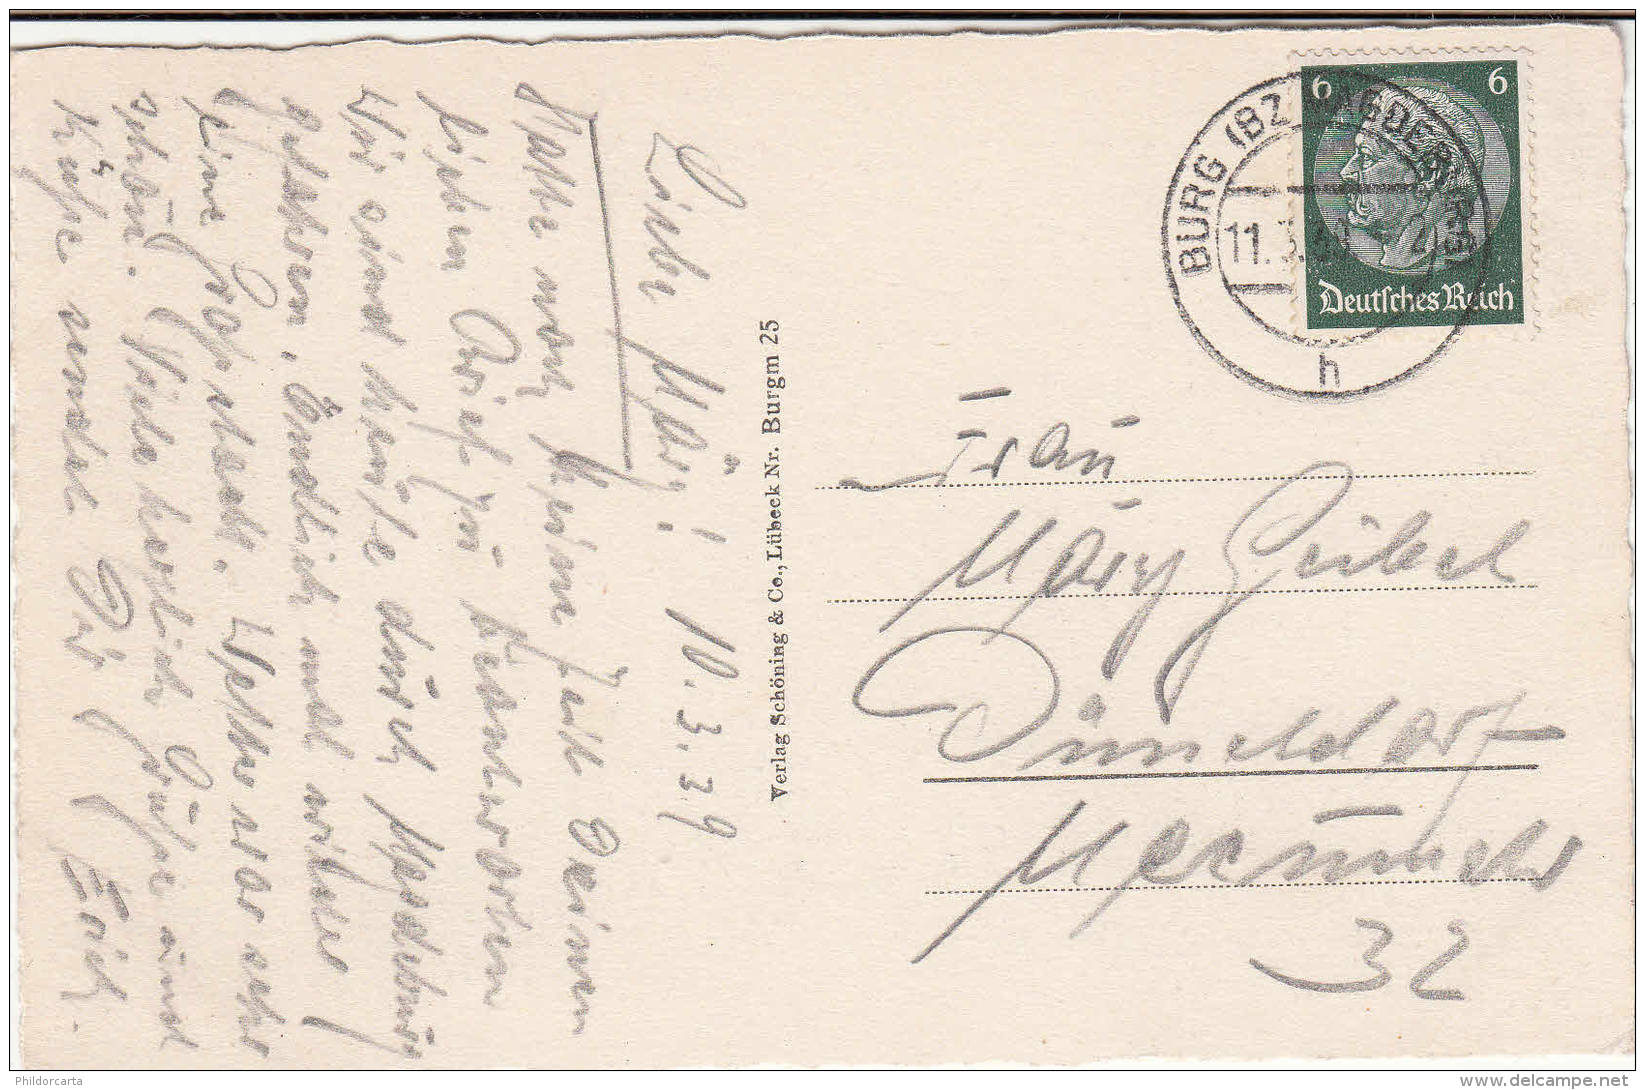 Liebe Mary! 10.3.39
Habe noch keine Zeit Deinen
lieben Brief zu beantworten
Wir sind heute durch Magdeburg
gefahren. Endlich mal wieder
eine Großstadt. Wetter war sehr
schön. Viele herzliche Grüße und
Küsse sendet Dir Erich.
Verlag Schöning & Co., Lübeck Nr. Burgm 25
BURG (BZ MAGDEBURG)
11.3.39
h
6 6
Deutsches Reich
Frau
Mary Geibel
Düsseldorf
32
Phildorcarta
www.delcampe.net